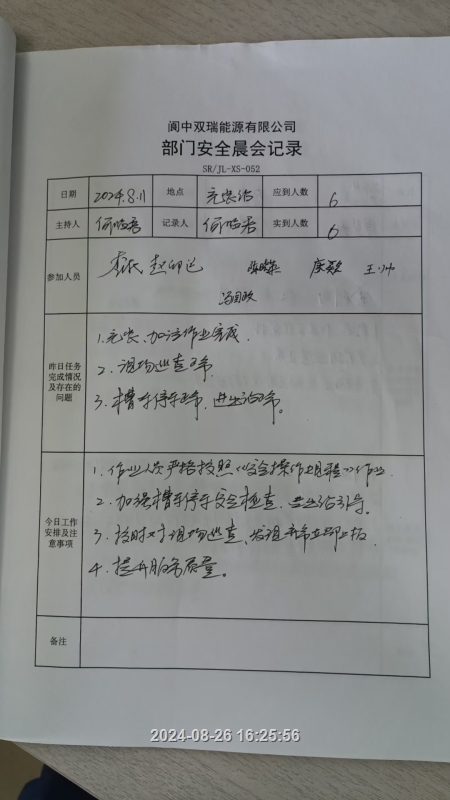 阆中双瑞能源有限公司
部门安全晨会记录
SR/JL-XS-052
日期 2024.8.11 地点 充装站 应到人数 6
主持人 记录人 实到人数 6
参加人员
昨日任务
完成情况
及存在的
问题
1.充装、加注作业完成.
2.现场巡查正常.
3.槽车停车正常,进出站正常。
今日工作
安排及注
意事项
1.作业人员严格按照《安全操作规程》作业.
2.加强槽车停车安全检查、进出站引导.
3.按时对现场巡查、发现异常立即上报.
4.提升服务质量。
备注
2024-08-26 16:25:56